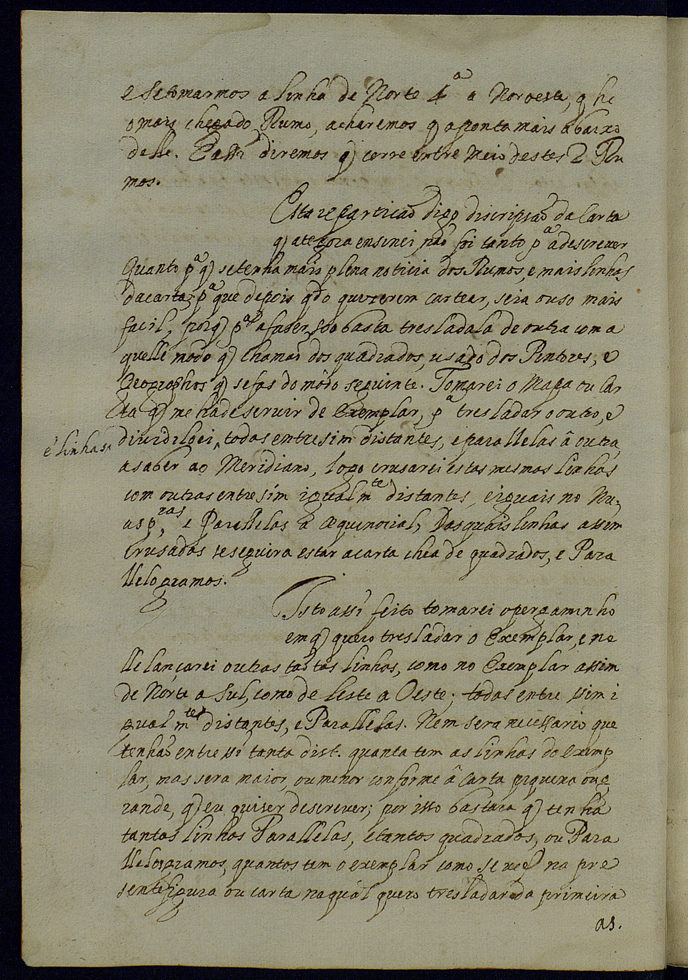 e se tomarmos a linha de Norte 4ª a Noroeste, q he
o mais chegado Rumo, acharemos q aponta mais abaixo
delle. E assi diremos q corre entre meio destes 2 Ru
mos.
Esta repartição digo discripção da Carta
q ategora ensinei não foi tanto pª a descrever
quanto pª q se tenha mais plena noticia dos Rumos, e mais linhas
da carta; pª que depois qdo quizerem cartear, seia o uso mais
facil, porq pª a faser, so basta tresladala de outra com a
quelle modo q chamao dos quadrados, usado dos Pintores, e
Geographos q se fas do modo seguinte. Tomarei o Mapa ou Car
ta q me hade servir de Exemplar, pª tresladar o outro, e
dividiloei, todas entresim distantes, e parallelas â outra,
e linhas
a saber ao Meridiano, logo crusarei estas mesmas linhas
com outras entresim igualmte distantes, e iguais no Nu,
as pras, e Parallelas â Æquinocial, Das quais linhas assim
Crusadas se seguira estar a carta chea de quadrados, e Para
llelogramos.
Isto assi feito tomarei o pergaminho
em q quero tresladar o Exemplar, e ne
lle lançarei outras tantas linhas, como no Exemplar assim
de Norte a Sul, como de Leste a Oeste; todas entre ssim i
gualmtes distantes, e Parallelas. Nem sera necessario que
tenhão entre ssi tanta dist. quanta tem as linhas do exemp
lar, mas sera maior, ou menor conforme â Carta piquena ou g
rande, q eu quiser descrever; por isso bastara q tenha
tantas linhas Parallelas, e tantos quadrados, ou Para
llelogramos, quantos tem o exemplar como se vee na pre
sente figura ou carta na qual quero tresladar da primeira
as.